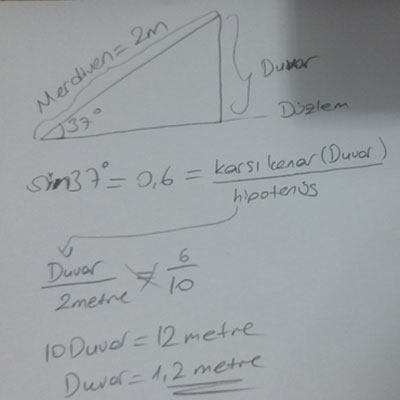 Merdiven = 2m
Duvar
37°
Düzlem
sin37° = 0,6 = karsı kenar (Duvar)
hipotenüs
Duvar = 6
2metre 10
10Duvar = 12 metre
Duvar = 1,2 metre